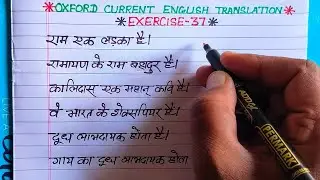 *OXFORD CURRENT ENGLISH TRANSLATION*
*EXERCISE-37*
राम एक लड़का है।
रामायण के राम बहादुर हैं।
कालिदास एक महान कवि हैं।
वे भारत के शेक्सपियर हैं।
दूध लाभदायक होता है।
गाय का दूध लाभदायक होता
PERMANENT